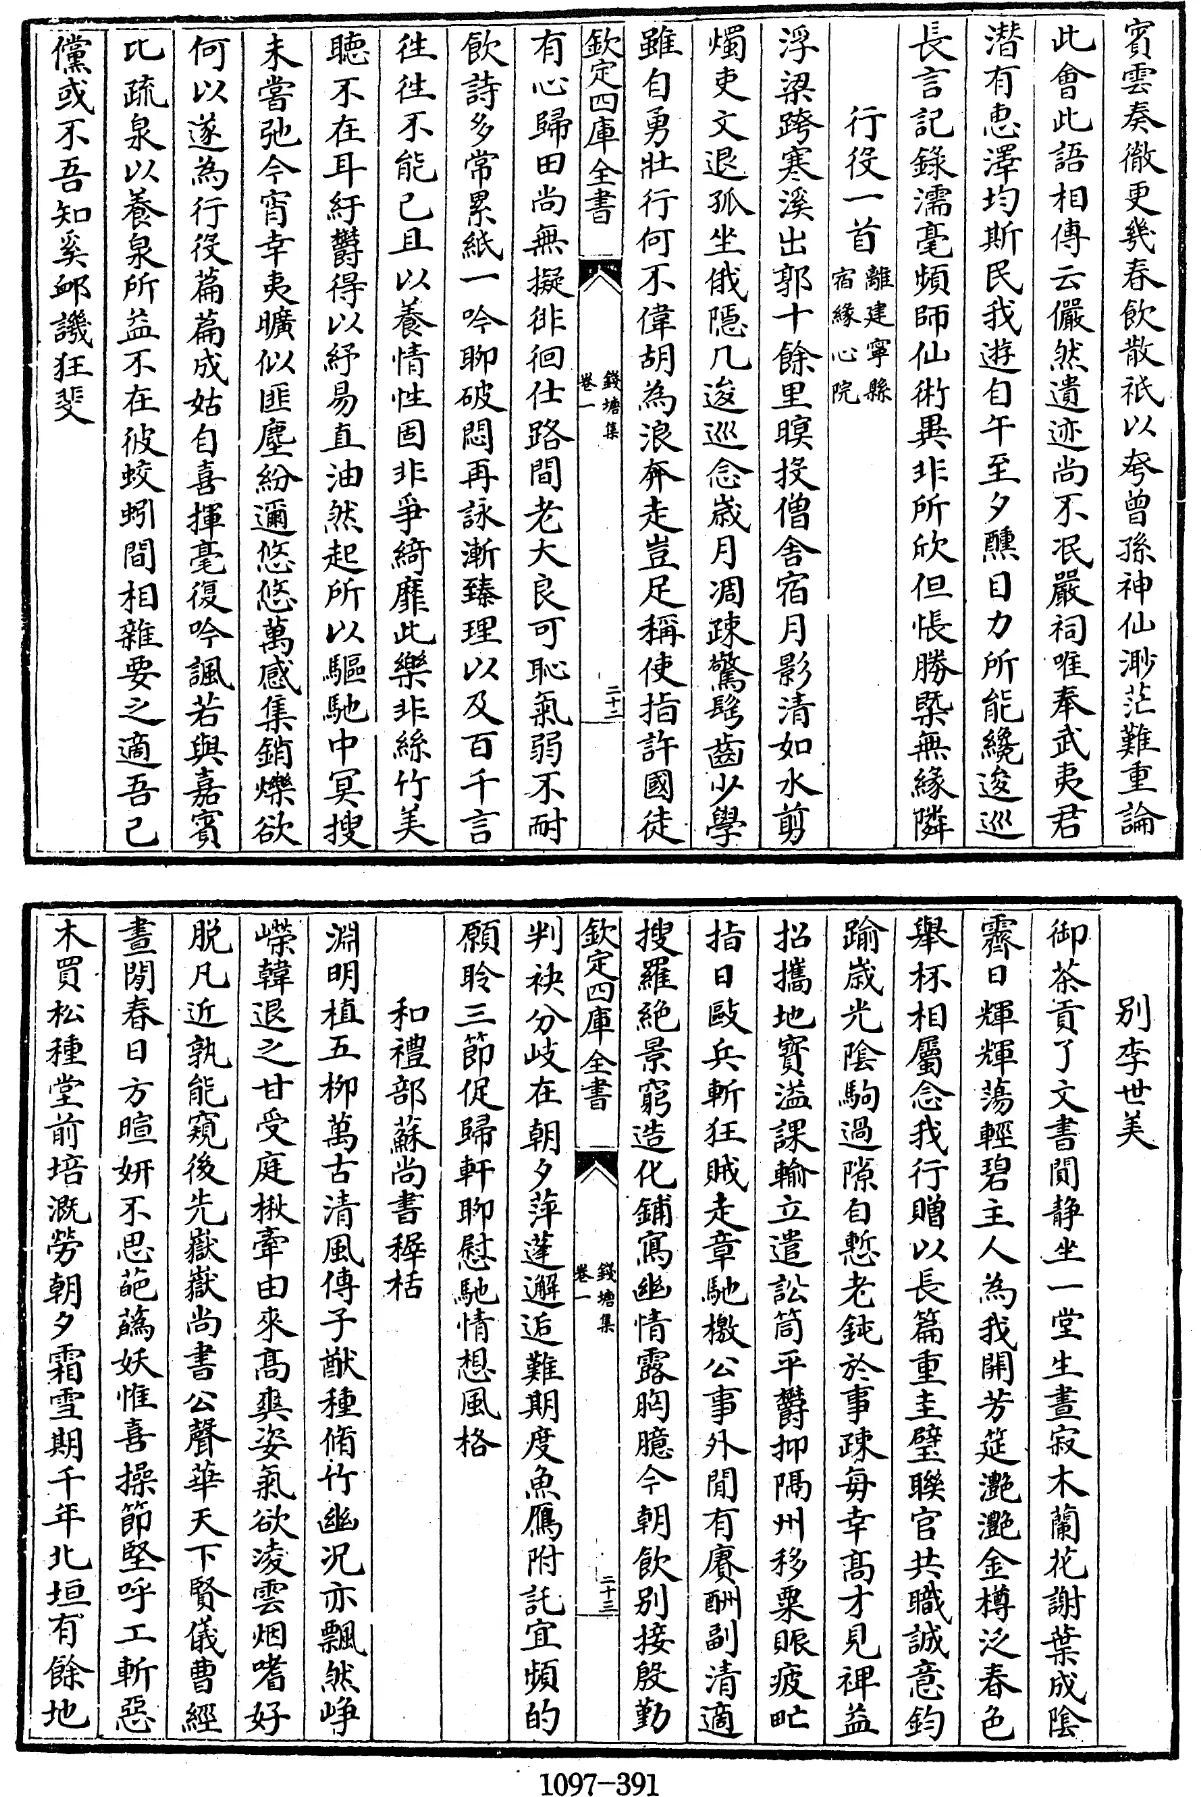 賓雲奏徹更幾春飲散祇以夸曾孫神仙渺茫難重論
此會此語相傳云儼然遺迹尚不泯嚴祠唯奉武夷君
潛有惠澤均斯民我遊自午至夕曛目力所能纔逡巡
長言記錄濡毫頻師仙術異非所欣但悵勝槩無緣隣
行役一首離建寧縣宿緣心院
浮梁跨寒溪出郭十餘里暝投僧舍宿月影清如水剪
燭吏文退孤坐俄隱几逡巡念歲月凋疎驚髩齒少學
雖自勇壯行何不偉胡為浪奔走豈足稱使指許國徒
欽定四庫全書
錢塘集
卷一
二十二
有心歸田尚無擬徘徊仕路間老大良可恥氣弱不耐
飲詩多常累紙一吟聊破悶再詠漸臻理以及百千言
往往不能已且以養情性固非爭綺靡此樂非絲竹美
聽不在耳紆鬱得以紓易直油然起所以驅馳中冥搜
未嘗弛今宵幸夷曠似匪塵紛邇悠悠萬感集銷爍欲
何以遂為行役篇篇成姑自喜揮毫復吟諷若與嘉賓
比疏泉以養泉所益不在彼蛟蚓間相雜要之適吾已
儻或不吾知奚䘏譏狂斐
別李世美
御茶貢了文書閒静坐一堂生晝寂木蘭花謝葉成陰
霽日輝輝蕩輕碧主人為我開芳筵灔灔金樽泛春色
舉杯相屬念我行贈以長篇重圭璧聯官共職誠意鈞
踰嵗光陰駒過隙自慙老鈍於事疎每幸髙才見禆益
招攜地寳溢課輸立遣訟筒平鬱抑隔州移粟賑疲甿
指日毆兵斬狂賊走章馳檄公事外閒有賡酬副清適
搜羅絶景窮造化鋪寫幽情露胸臆今朝飲别接殷勤
欽定四庫全書
錢塘集
卷一
二十三
判袂分岐在朝夕萍蓬邂逅難期度魚鴈附託宜頻的
願聆三節促歸軒聊慰馳情想風格
和禮部蘇尚書稺栝
淵明植五柳萬古清風傳子猷種脩竹幽况亦飄然崢
嶸韓退之甘受庭楸牽由來髙爽姿氣欲凌雲烟嗜好
脱凡近孰能窺後先嶽嶽尚書公聲華天下賢儀曹經
晝閒春日方暄妍不思葩蘤妖惟喜操節堅呼工斬惡
木買松種堂前培溉勞朝夕霜雪期千年北垣有餘地
1097-391